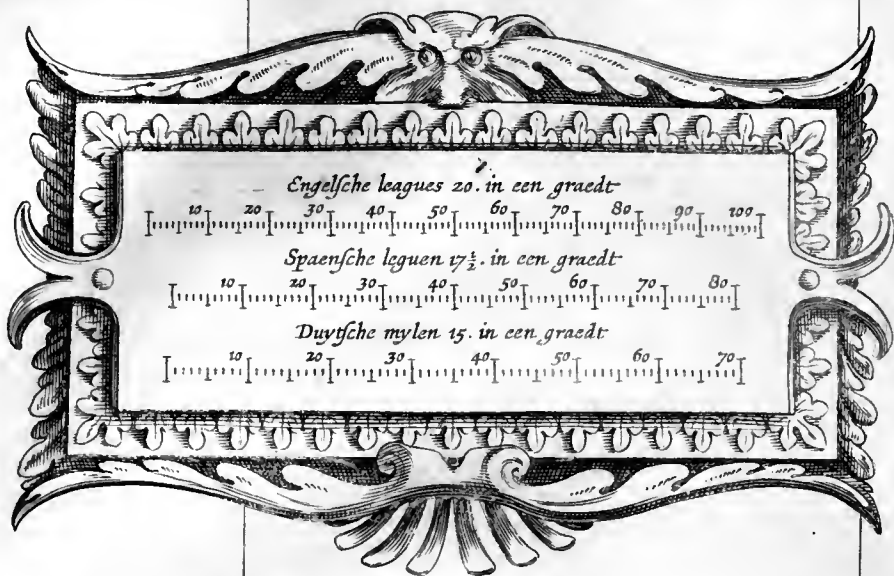 Engelſche leagues 20. in een graedt
10 20 30 40 50 60 70 80 90 100
Spaenſche leguen 17½. in een graedt
10 20 30 40 50 60 70 80
Duytſche mylen 15. in een graedt
10 20 30 40 50 60 70